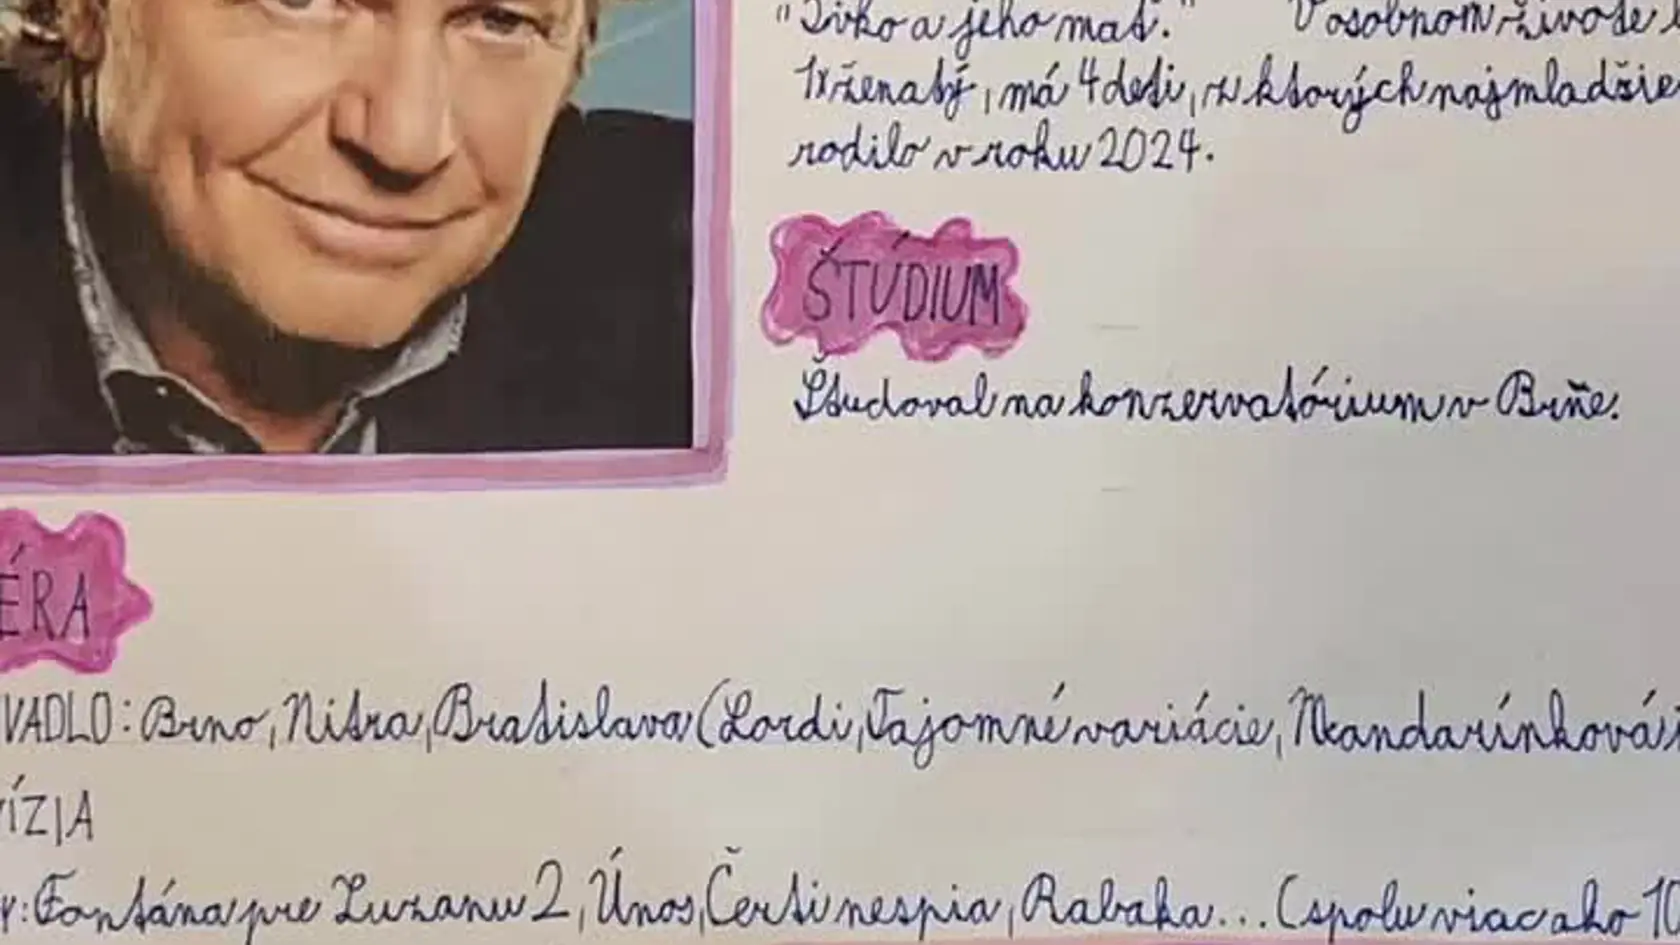 "Ťvko a jeho mať." V osobnom živote
1x ženatý, má 4 deti, z ktorých najmladšie
rodilo v roku 2024.
ŠTÚDIUM
Študoval na konzervatórium v Brňe.
ÉRA
VADLO: Brno, Nitra, Bratislava (Lordi, Tajomné variácie, Mandarínková
VÍZIA
Y: Fontána pre Zuzanu 2, Únos, Čerti nespia, Rabaka... (spolu viac ako 10